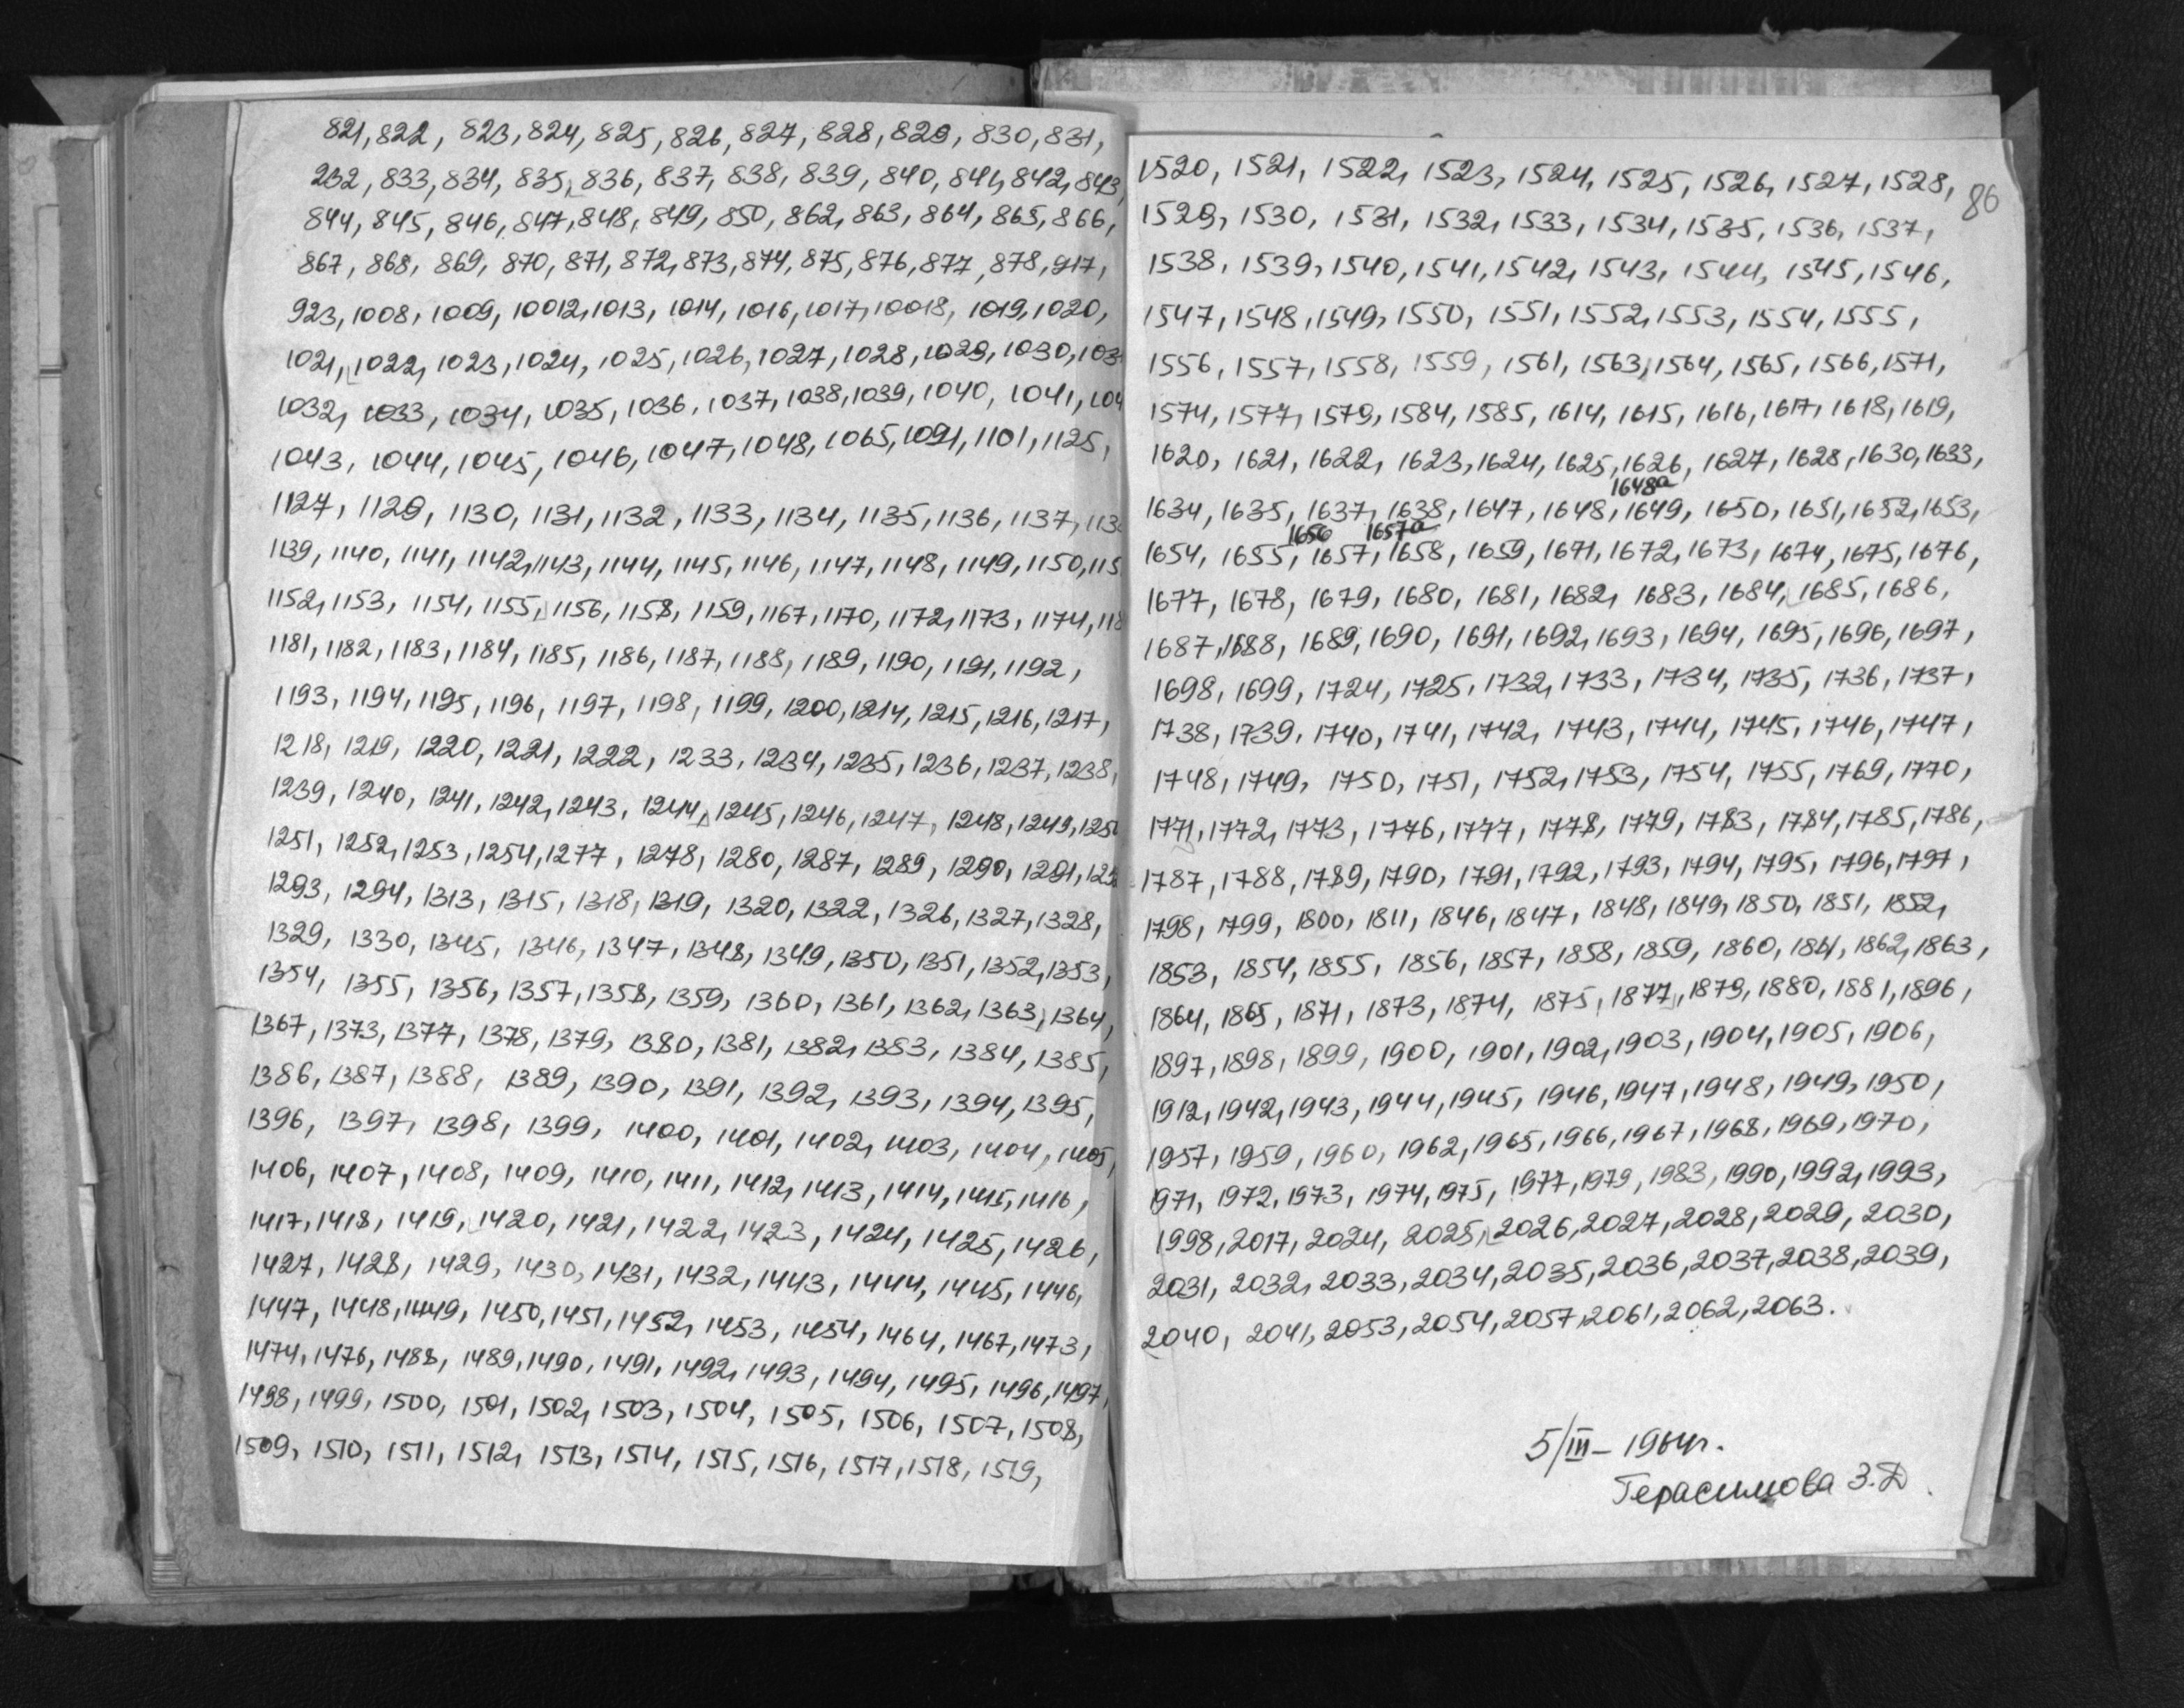 821, 822, 823, 824, 825, 826, 827, 828, 829, 830, 831,
232, 833, 834, 835, 836, 837, 838, 839, 840, 841, 842, 843,
844, 845, 846, 847, 848, 849, 850, 862, 863, 864, 865, 866,
867, 868, 869, 870, 871, 872, 873, 874, 875, 876, 877, 878, 917,
923, 1008, 1009, 10012, 1013, 1014, 1016, 1017, 10018, 1019, 1020,
1021, 1022, 1023, 1024, 1025, 1026, 1027, 1028, 1029, 1030, 103
1032, 1033, 1034, 1035, 1036, 1037, 1038, 1039, 1040, 1041, 104
1043, 1044, 1045, 1046, 1047, 1048, 1065, 1091, 1101, 1125,
1127, 1129, 1130, 1131, 1132, 1133, 1134, 1135, 1136, 1137, 113
1139, 1140, 1141, 1142, 1143, 1144, 1145, 1146, 1147, 1148, 1149, 1150, 115
1152, 1153, 1154, 1155, 1156, 1158, 1159, 1167, 1170, 1172, 1173, 1174, 118
1181, 1182, 1183, 1184, 1185, 1186, 1187, 1188, 1189, 1190, 1191, 1192,
1193, 1194, 1195, 1196, 1197, 1198, 1199, 1200, 1214, 1215, 1216, 1217,
1218, 1219, 1220, 1221, 1222, 1233, 1234, 1235, 1236, 1237, 1238,
1239, 1240, 1241, 1242, 1243, 1244, 1245, 1246, 1247, 1248, 1249, 1250
1251, 1252, 1253, 1254, 1277, 1278, 1280, 1287, 1289, 1290, 1291, 129
1293, 1294, 1313, 1315, 1318, 1319, 1320, 1322, 1326, 1327, 1328,
1329, 1330, 1345, 1346, 1347, 1348, 1349, 1350, 1351, 1352, 1353,
1354, 1355, 1356, 1357, 1358, 1359, 1360, 1361, 1362, 1363, 1364,
1367, 1373, 1377, 1378, 1379, 1380, 1381, 1382, 1383, 1384, 1385,
1386, 1387, 1388, 1389, 1390, 1391, 1392, 1393, 1394, 1395,
1396, 1397, 1398, 1399, 1400, 1401, 1402, 1403, 1404, 1405,
1406, 1407, 1408, 1409, 1410, 1411, 1412, 1413, 1414, 1415, 1416,
1417, 1418, 1419, 1420, 1421, 1422, 1423, 1424, 1425, 1426,
1427, 1428, 1429, 1430, 1431, 1432, 1443, 1444, 1445, 1446,
1447, 1448, 1449, 1450, 1451, 1452, 1453, 1454, 1464, 1467, 1473,
1474, 1476, 1488, 1489, 1490, 1491, 1492, 1493, 1494, 1495, 1496, 1497,
1498, 1499, 1500, 1501, 1502, 1503, 1504, 1505, 1506, 1507, 1508,
1509, 1510, 1511, 1512, 1513, 1514, 1515, 1516, 1517, 1518, 1519,
86
1520, 1521, 1522, 1523, 1524, 1525, 1526, 1527, 1528,
1529, 1530, 1531, 1532, 1533, 1534, 1535, 1536, 1537,
1538, 1539, 1540, 1541, 1542, 1543, 1544, 1545, 1546,
1547, 1548, 1549, 1550, 1551, 1552, 1553, 1554, 1555,
1556, 1557, 1558, 1559, 1561, 1563, 1564, 1565, 1566, 1571,
1574, 1577, 1579, 1584, 1585, 1614, 1615, 1616, 1617, 1618, 1619,
1620, 1621, 1622, 1623, 1624, 1625, 1626, 1627, 1628, 1630, 1633,
1648а
1634, 1635, 1637, 1638, 1647, 1648, 1649, 1650, 1651, 1652, 1653,
1656 1657а
1654, 1655, 1657, 1658, 1659, 1671, 1672, 1673, 1674, 1675, 1676,
1677, 1678, 1679, 1680, 1681, 1682, 1683, 1684, 1685, 1686,
1687, 1688, 1689, 1690, 1691, 1692, 1693, 1694, 1695, 1696, 1697,
1698, 1699, 1724, 1725, 1732, 1733, 1734, 1735, 1736, 1737,
1738, 1739, 1740, 1741, 1742, 1743, 1744, 1745, 1746, 1747,
1748, 1749, 1750, 1751, 1752, 1753, 1754, 1755, 1769, 1770,
1771, 1772, 1773, 1776, 1777, 1778, 1779, 1783, 1784, 1785, 1786,
1787, 1788, 1789, 1790, 1791, 1792, 1793, 1794, 1795, 1796, 1797,
1798, 1799, 1800, 1811, 1846, 1847, 1848, 1849, 1850, 1851, 1852,
1853, 1854, 1855, 1856, 1857, 1858, 1859, 1860, 1861, 1862, 1863,
1864, 1865, 1871, 1873, 1874, 1875, 1877, 1879, 1880, 1881, 1896,
1897, 1898, 1899, 1900, 1901, 1902, 1903, 1904, 1905, 1906,
1912, 1942, 1943, 1944, 1945, 1946, 1947, 1948, 1949, 1950,
1957, 1959, 1960, 1962, 1965, 1966, 1967, 1968, 1969, 1970,
1971, 1972, 1973, 1974, 1975, 1977, 1979, 1983, 1990, 1992, 1993,
1998, 2017, 2024, 2025, 2026, 2027, 2028, 2029, 2030,
2031, 2032, 2033, 2034, 2035, 2036, 2037, 2038, 2039,
2040, 2041, 2053, 2054, 2057, 2061, 2062, 2063.
5/III – 1964г.
Герасимова З.Д.